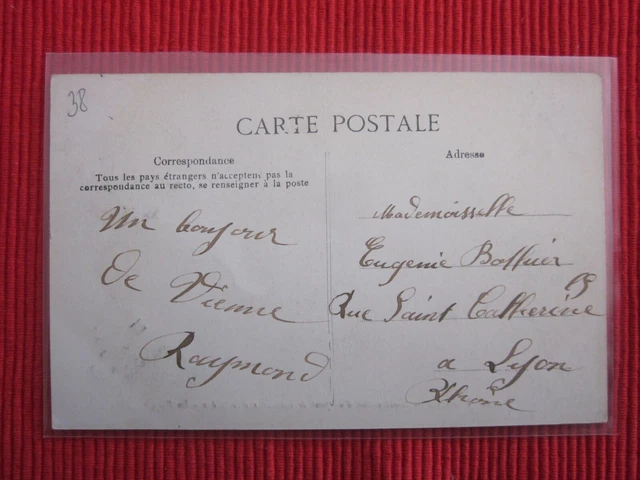 38
CARTE POSTALE
Correspondance
Tous les pays étrangers n'acceptent pas la
correspondance au recto, se renseigner à la poste
Un bonjour
de Vienne
Raymond
Adresse
Mademoisselle
Eugenie
Rue Saint Catherine
a Lyon
Rhône